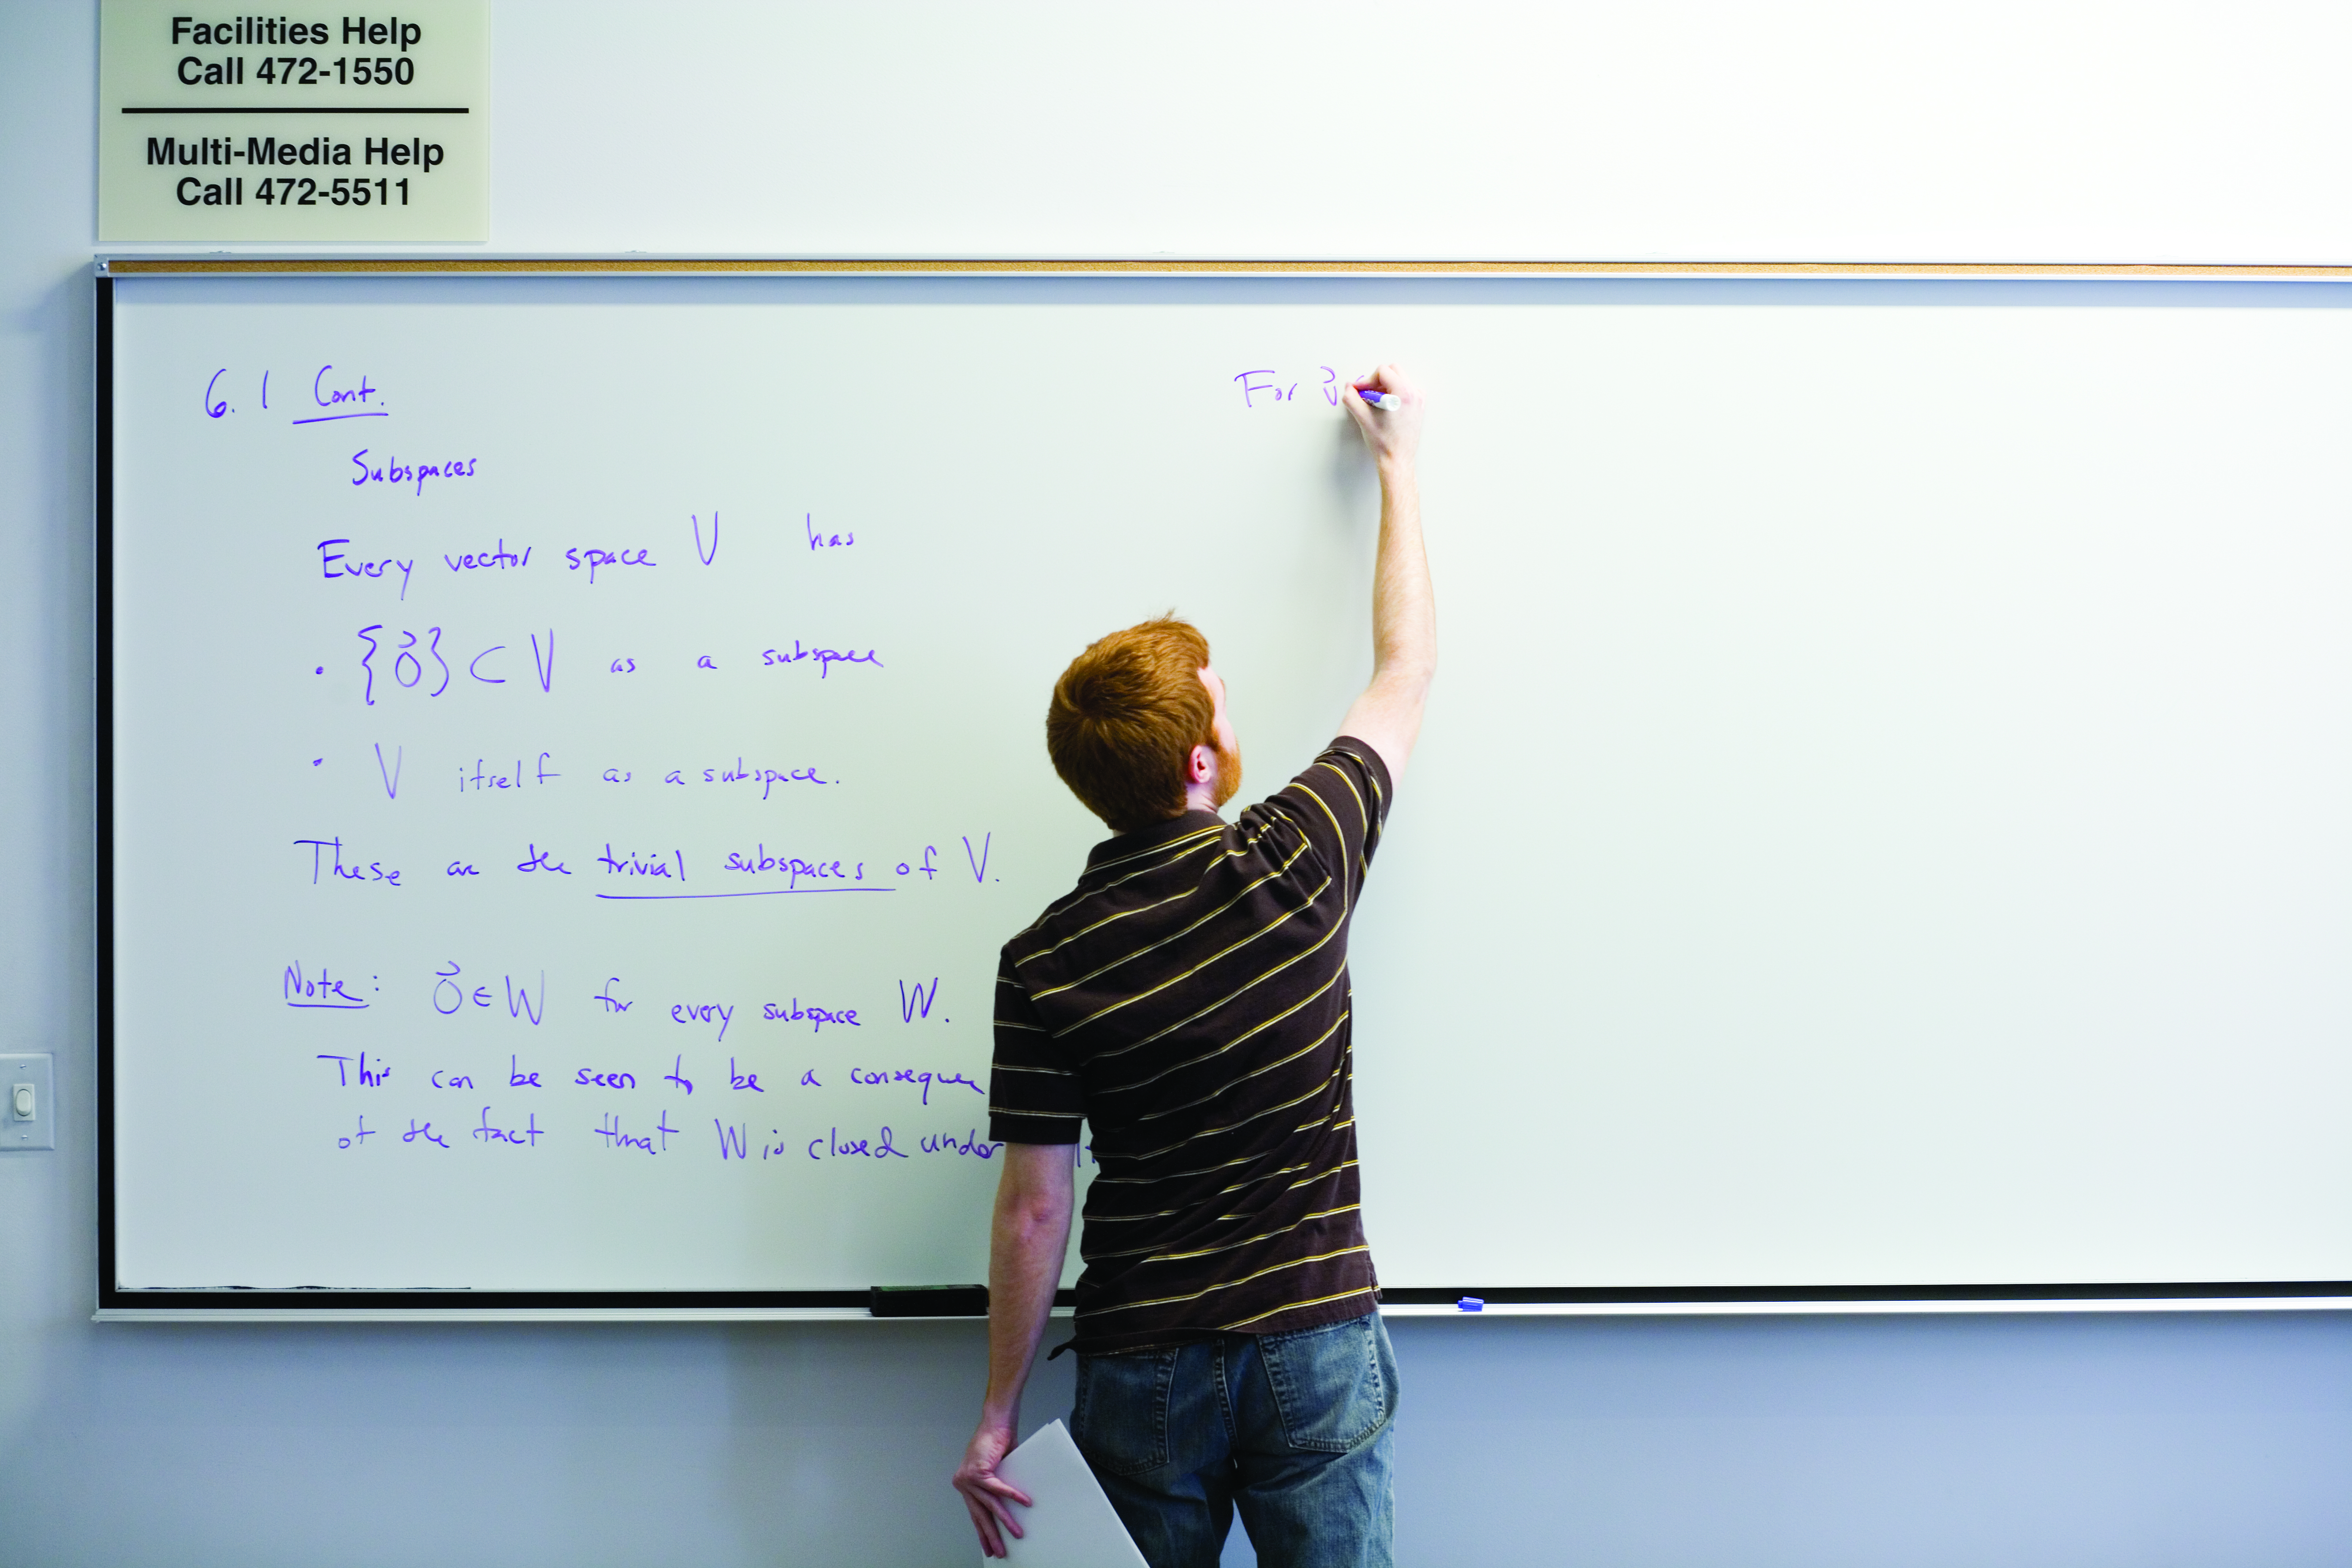 Facilities Help
Call 472-1550
Multi-Media Help
Call 472-5511
6.1 Cont.
Subspaces
Every vector space V has
• {0⃗} ⊂ V as a subspace
• V itself as a subspace.
These are the trivial subspaces of V.
Note: 0⃗ ∈ W for every subspace W.
This can be seen to be a consequence
of the fact that W is closed under
For v⃗